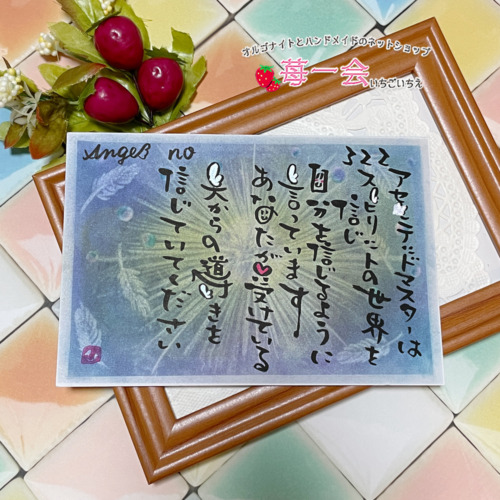 オルゴナイトとハンドメイドのネットショップ
苺一会いちごいちえ
Angel no
322
アセンデッドマスターは
スピリットの世界を
信じ
自分を信じるように
言っています
あなたが受けている
天からの導きを
信じていてください